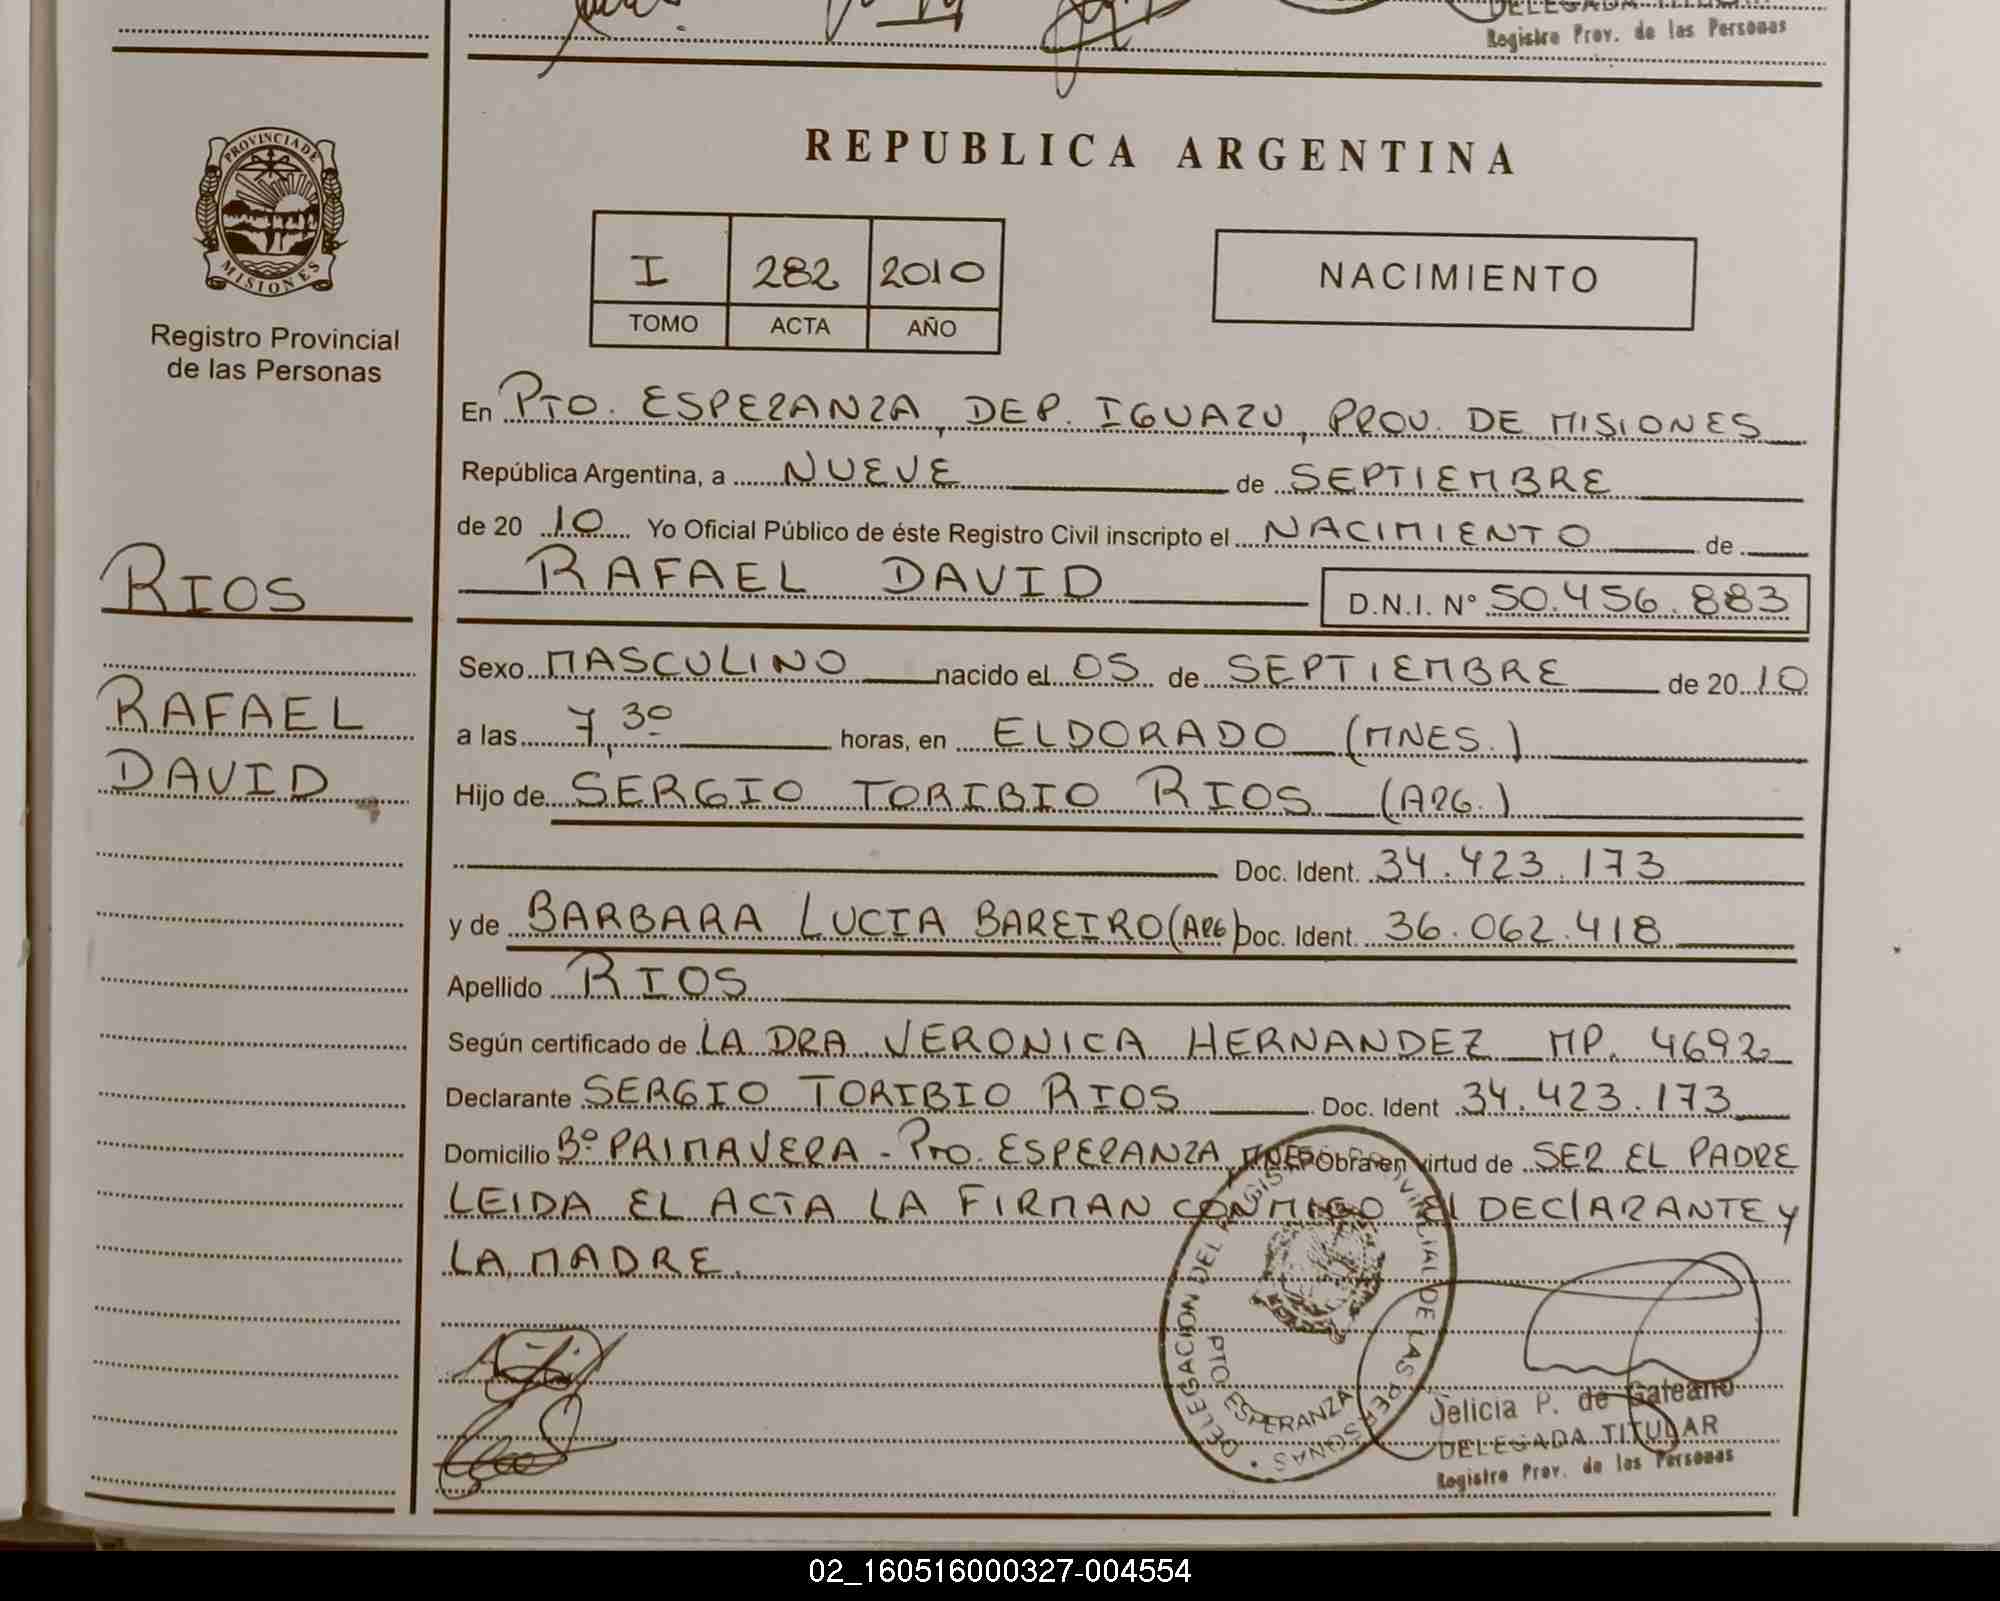 Registro Prov. de las Personas
PROVINCIA DE
MISIONES
Registro Provincial
de las Personas
RIOS
RAFAEL
DAVID
REPUBLICA ARGENTINA
I 282 2010
TOMO ACTA AÑO
NACIMIENTO
En PTO. ESPERANZA, DEP. IGUAZU, PROV. DE MISIONES
República Argentina, a NUEVE de SEPTIEMBRE
de 20 10 Yo Oficial Público de éste Registro Civil inscripto el NACIMIENTO de
RAFAEL DAVID D.N.I. Nº 50.456.883
Sexo MASCULINO nacido el 05 de SEPTIEMBRE de 20 10
a las 7,30 horas, en ELDORADO (MNES.)
Hijo de SERGIO TORIBIO RIOS (ARG.)
Doc. Ident. 34.423.173
y de BARBARA LUCIA BAREIRO (ARG) Doc. Ident. 36.062.418
Apellido RIOS
Según certificado de LA DRA VERONICA HERNANDEZ MP. 4692
Declarante SERGIO TORIBIO RIOS Doc. Ident 34.423.173
Domicilio Bº PRIMAVERA - PTO. ESPERANZA Obra en virtud de SER EL PADRE
LEIDA EL ACTA LA FIRMAN CONMIGO El DEClARANTE y
LA MADRE.
DELEGACION DEL REGISTRO PROVINCIAL DE LAS PERSONAS
PTO. ESPERANZA
Delicia P. de Galeano
DELEGADA TITULAR
Registro Prov. de las Personas
02_160516000327-004554